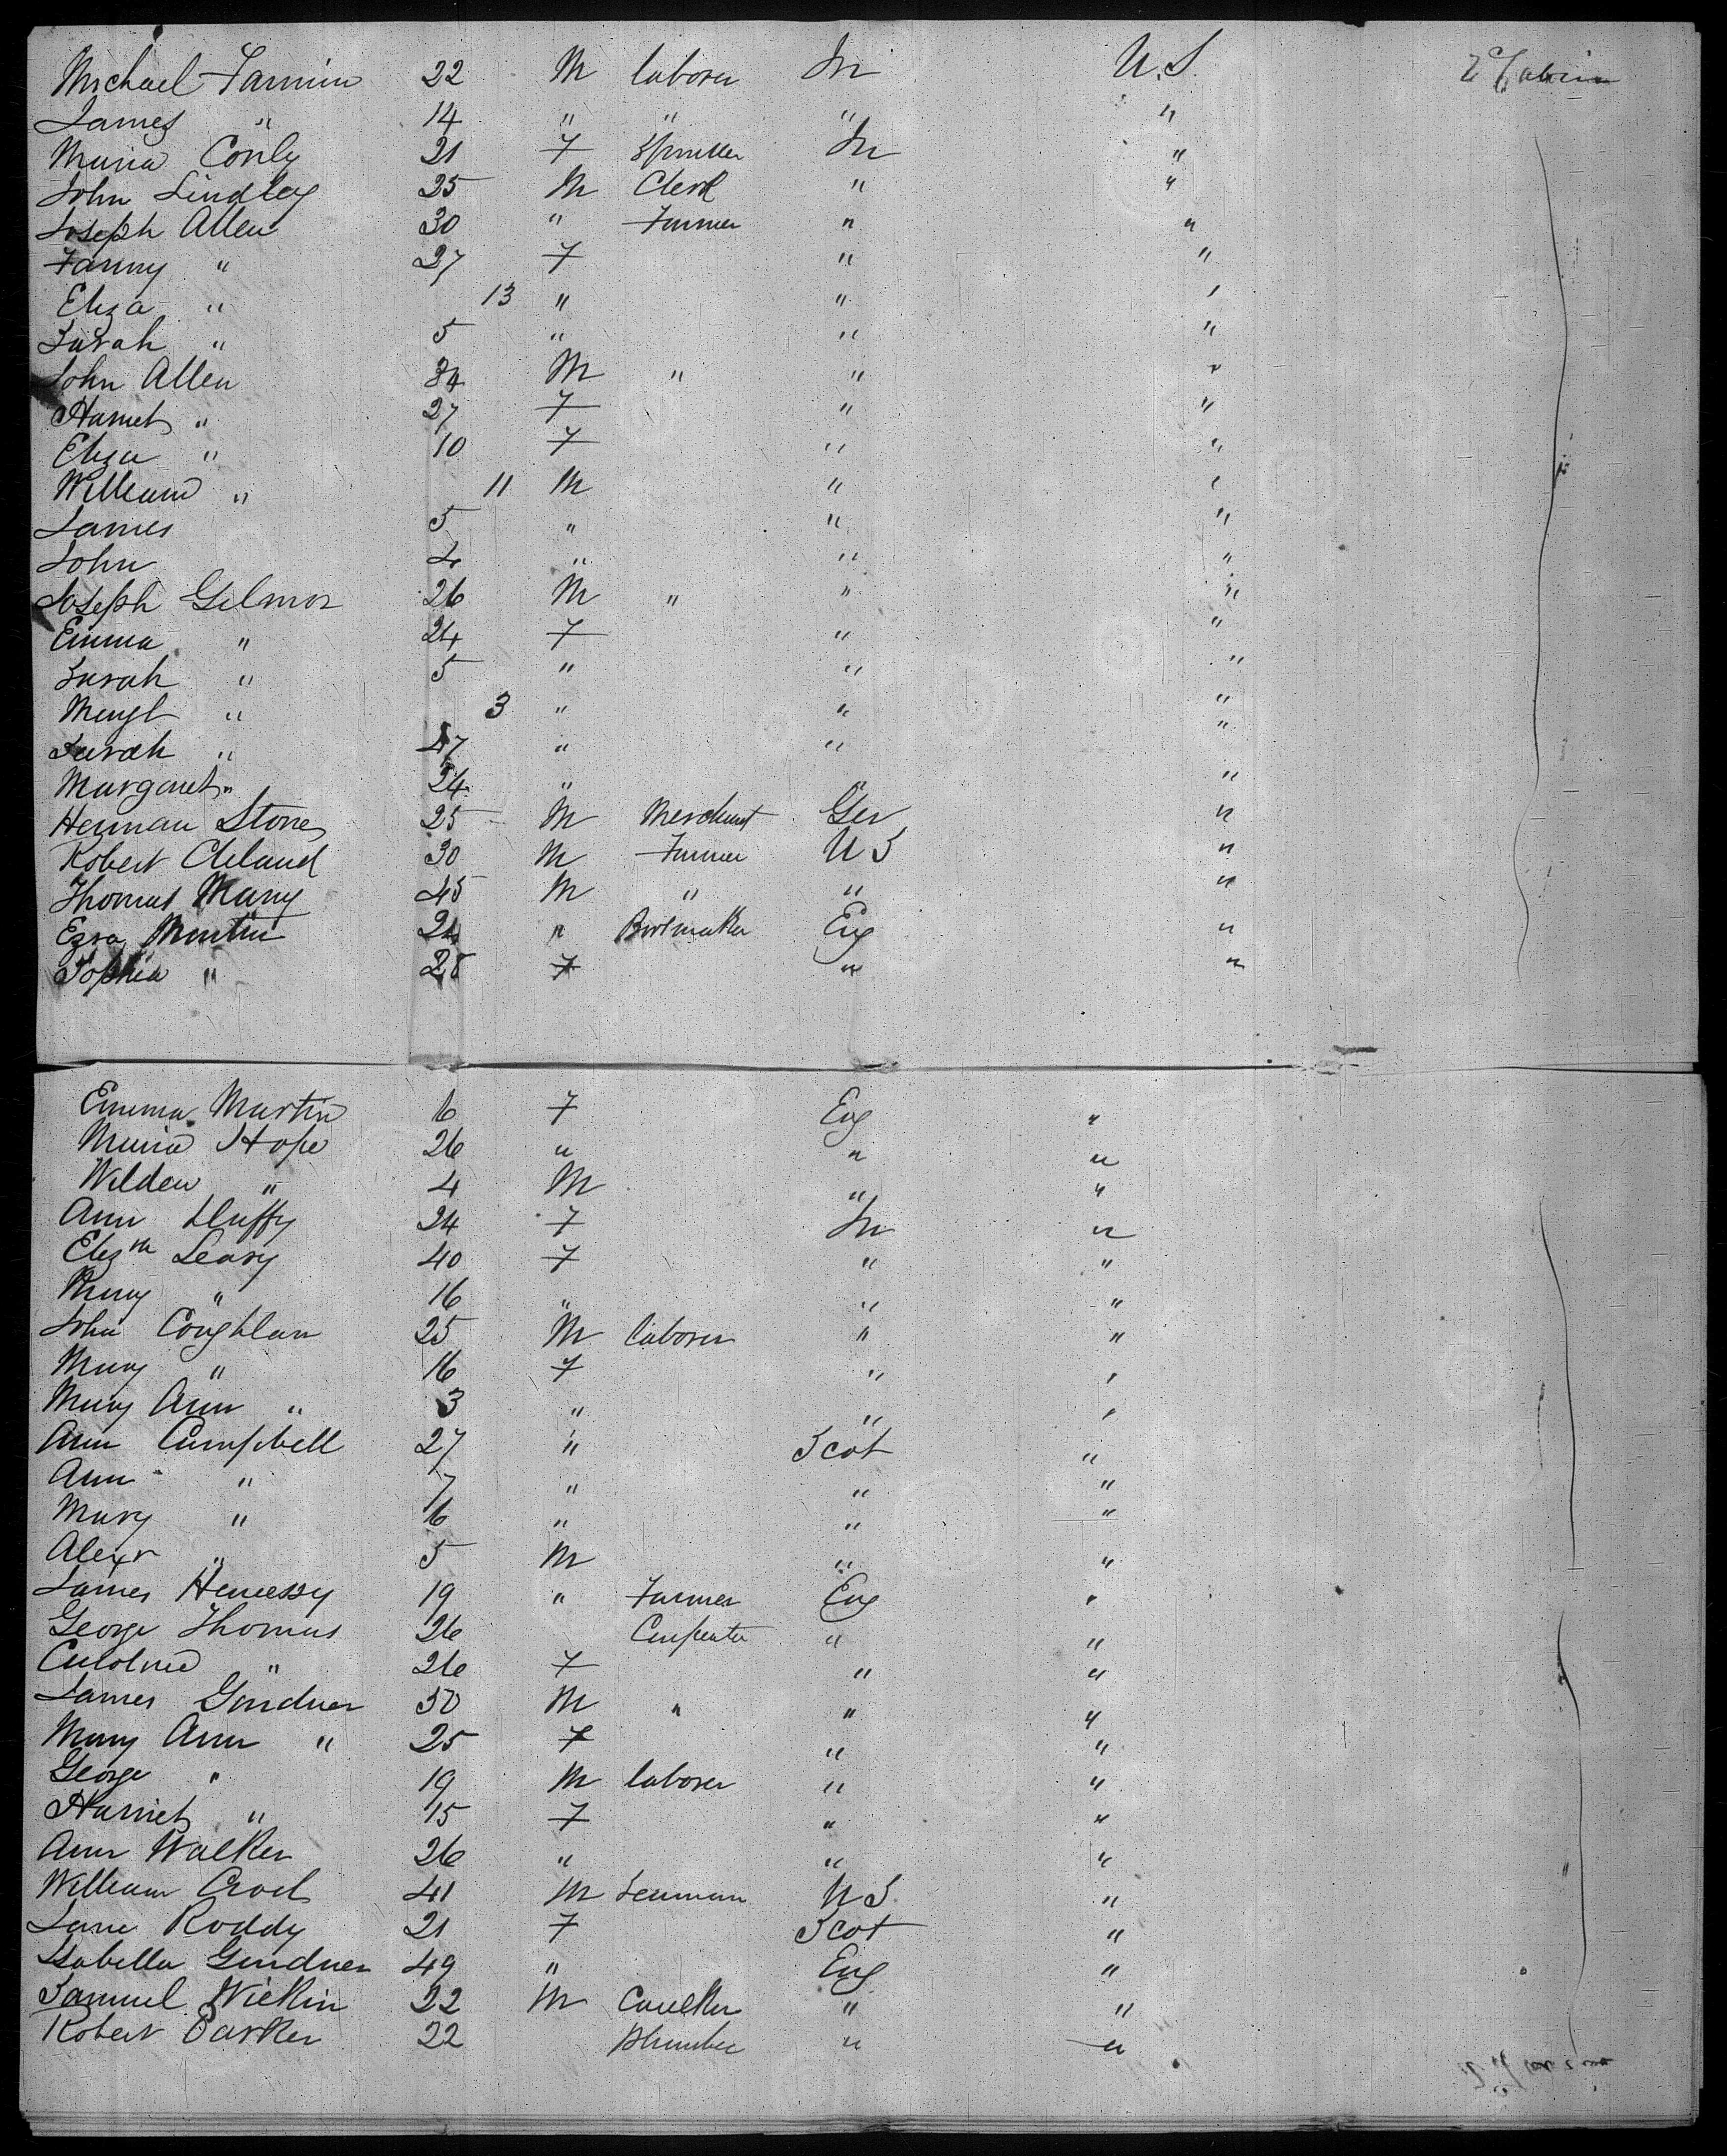 Michael 22 M laborer Ir U.S. 2 Cabin
James " 14 " " " "
Maria Conly 21 F Spinster Ir "
John Lindley 25 M Clerk " "
Joseph Allen 30 " Farmer " "
Fanny " 27 F " "
Eliza " 13 " " "
Sarah " 5 " " "
John Allen 34 M " " "
Harriet " 27 F " "
Eliza " 10 F " "
William " 11 M " "
James 5 " " "
John 4 " " "
Joseph Gilmor 26 M " " "
Emma " 24 F " "
Sarah " 5 " " "
Margt " 3 " " "
Sarah " 47 " " "
Margaret " 24 " " "
Herman Stones 25 M Merchant Ger "
Robert Cleland 30 M Farmer U S "
Thomas Many 45 M " " "
Ezra Martin 24 " Bootmaker Eng "
Sophia " 28 F " "
Emma Martin 6 F Eng "
Maria Hope 26 " " "
Wilden " 4 M " "
Ann Duffy 24 F Ir "
Elizth Leary 40 F " "
Mary " 16 " " "
John Coughlan 25 M laborer " "
Mary " 16 F " "
Mary Ann " 3 " " "
Ann Campbell 27 " Scot "
Ann " 7 " " "
Mary " 6 " " "
Alexr " 5 M " "
James Henessy 19 " Farmer Eng "
George Thomas 26 Carpenter " "
Caroline " 26 F " "
James Gardner 30 M " " "
Mary Ann " 25 F " "
George " 19 M laborer " "
Harriet " 15 F " "
Ann Walker 26 " " "
William 41 M Seaman U S "
Jane Roddy 21 F Scot "
Isabella Gardner 49 " Eng "
Samuel Wickin 22 M Caulker " "
Robert Parker 22 Plumber " "